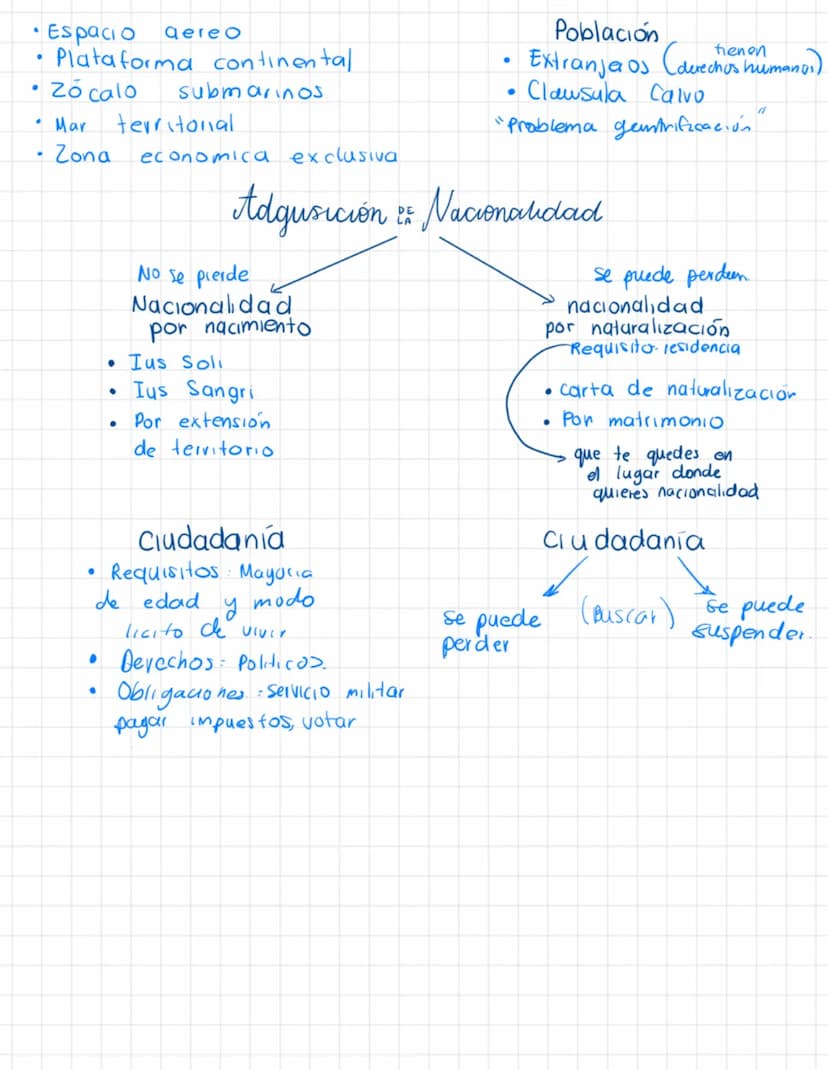 • Espacio aereo
• Plataforma continental
• Zócalo submarinos
• Mar territorial
• Zona economica exclusiva
Población
• Extranjeros (tienen derechos humanos)
• Clausula Calvo
"Problema gentrificación"
Adqusición DE LA Nacionalidad
No se pierde
Nacionalidad
por nacimiento
• Ius Soli
• Ius Sangri
• Por extensión
de territorio
se puede perder
nacionalidad
por naturalización
Requisito residencia
• carta de naturalización
• Por matrimonio
que te quedes en
el lugar donde
quieres nacionalidad
Ciudadanía
• Requisitos: Mayoria
de edad y modo
licito de vivir
• Derechos: Politicos.
• Obligaciones: servicio militar
pagar impuestos, votar
Ciudadanía
se puede
perder
(Buscar)
se puede
suspender.